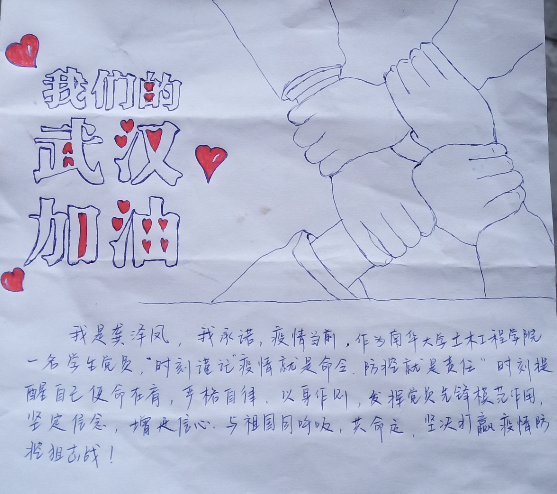 我们的
武汉
加油
我是龚泽凤，我承诺，疫情当前，作为南华大学土木工程学院
一名学生党员，"时刻谨记"疫情就是命令、防控就是责任"时刻提
醒自己使命在肩，严格自律、以身作则，发挥党员先锋模范作用，
坚定信念，增强信心、与祖国同呼吸，共命运，坚决打赢疫情防
控狙击战！